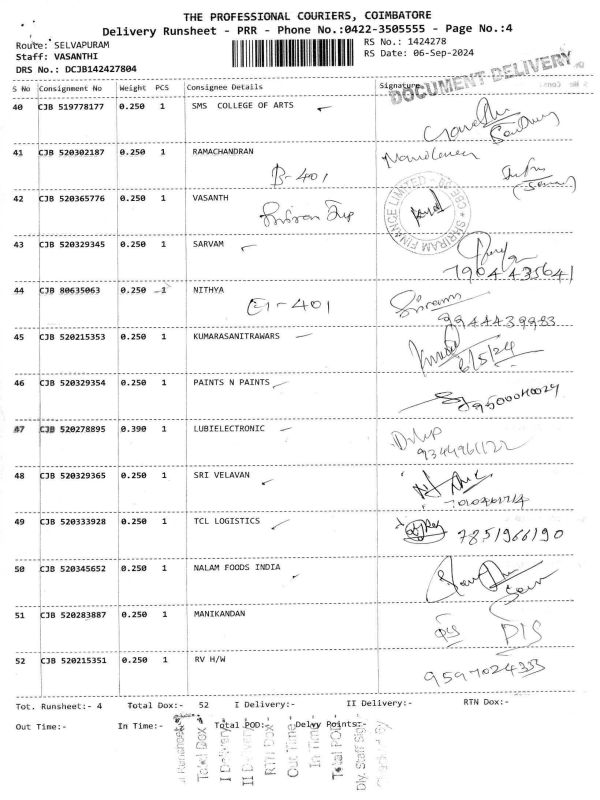 THE PROFESSIONAL COURIERS, COIMBATORE
Delivery Runsheet - PRR - Phone No.:0422-3505555 - Page No.:4
Route: SELVAPURAM
RS No.: 1424278
Staff: VASANTHI
RS Date: 06-Sep-2024
DRS No.: DCJB142427804
DOCUMENT DELIVERY
S No Consignment No Weight PCS Consignee Details Signature
40 CJB 519778177 0.250 1 SMS COLLEGE OF ARTS
41 CJB 520302187 0.250 1 RAMACHANDRAN
B-401
42 CJB 520365776 0.250 1 VASANTH
SHRIRAM FINANCE LIMITED
43 CJB 520329345 0.250 1 SARVAM
7904435641
44 CJB 80635063 0.250 1 NITHYA
G1-401
9944439983
45 CJB 520215353 0.250 1 KUMARASANITRAWARS
6/5/24
46 CJB 520329354 0.250 1 PAINTS N PAINTS
47 CJB 520278895 0.390 1 LUBIELECTRONIC
Dilip
9344961122
48 CJB 520329365 0.250 1 SRI VELAVAN
49 CJB 520333928 0.250 1 TCL LOGISTICS
7851966190
50 CJB 520345652 0.250 1 NALAM FOODS INDIA
51 CJB 520283887 0.250 1 MANIKANDAN
52 CJB 520215351 0.250 1 RV H/W
9597024333
Tot. Runsheet:- 4 Total Dox:- 52 I Delivery:- II Delivery:- RTN Dox:-
Out Time:- In Time:- Total POD:- Delvy Points:-
Total Dox
I Delivery
II Delivery
RTN Dox
Out Time
In Time
Total POD
Dly. Staff Sign